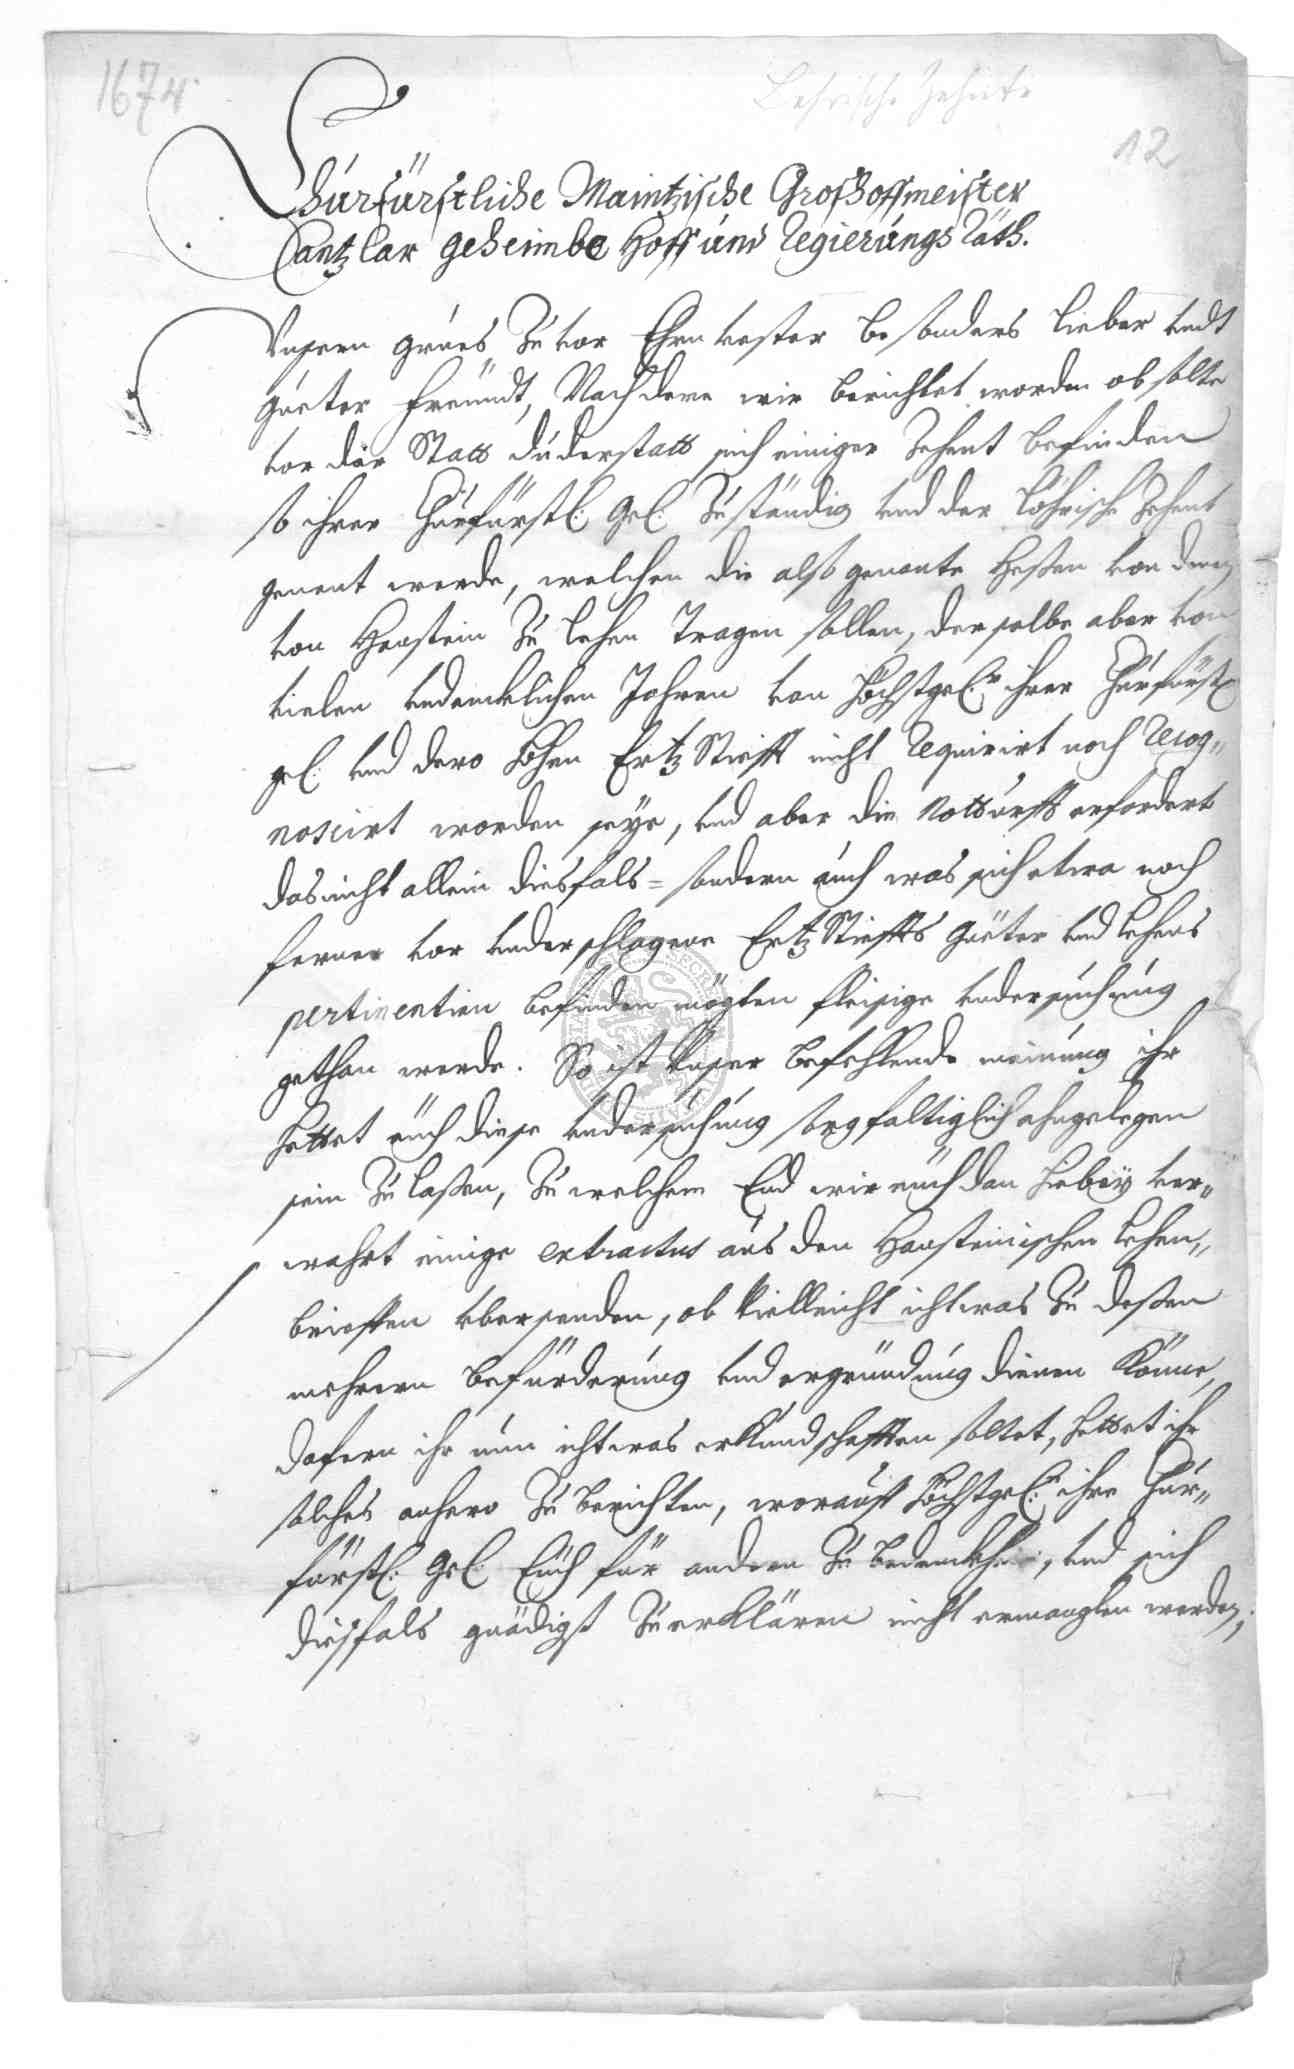 1674.
Lehrische Zehnte
12
Churfürstliche Maintzische Groshoffmeister
Cantzlar geheimbe Hoff und Regierungs Räth.
Unsern grues Zuvor Ehrnvester besonders lieber undt
gueter Freundt, Nachdeme wir berichtet worden ob solte
vor der Statt Duderstatt sich einiger Zehent befinden
so ihrer Churfürstl: Gl: Zuständig und der Löhrische Zehent
genent werde, welchen die also genante Heßen von denen
von Hanstein Zu lehen Tragen sollen, derselbe aber von
vielen undencklichen Jahren von Höchstgl:r ihrer Churfürstl
gl: und dero Hohen Ertz Stifft nicht Requirirt noch Recog„
noscirt worden seye, und aber die Notturfft erfordert
das nicht allein diesfals = sondern auch was sich etwa noch
ferner vor underschlagene Ertz Stiffts Güeter und Lehens
pertinentien befinden mögten fleisige undersuchung
gethan werde. So ist Unser befehlende meinung ihr
hettet euch diese undersuchung sorgfaltiglich ahngelegen
sein Zu laßen, Zu welchem End wir euch dan hiebey ver„
wahrt einige extractus aus den Hansteinischen Lehen„
brieffen übersenden, ob vielleicht ichtwas Zu deßen
mehrern befürderung und ergründung dienen könne,
dafern ihr nun ichtwas erkundschafften soltet, hettet ihr
solches anhero Zu berichten, worauff Höchstgl: ihre Chur„
fürstl: Gl: Euch für andern Zu bedencken, und sich
diesfals gnädigst Zu erklären nicht ermanglen werden,